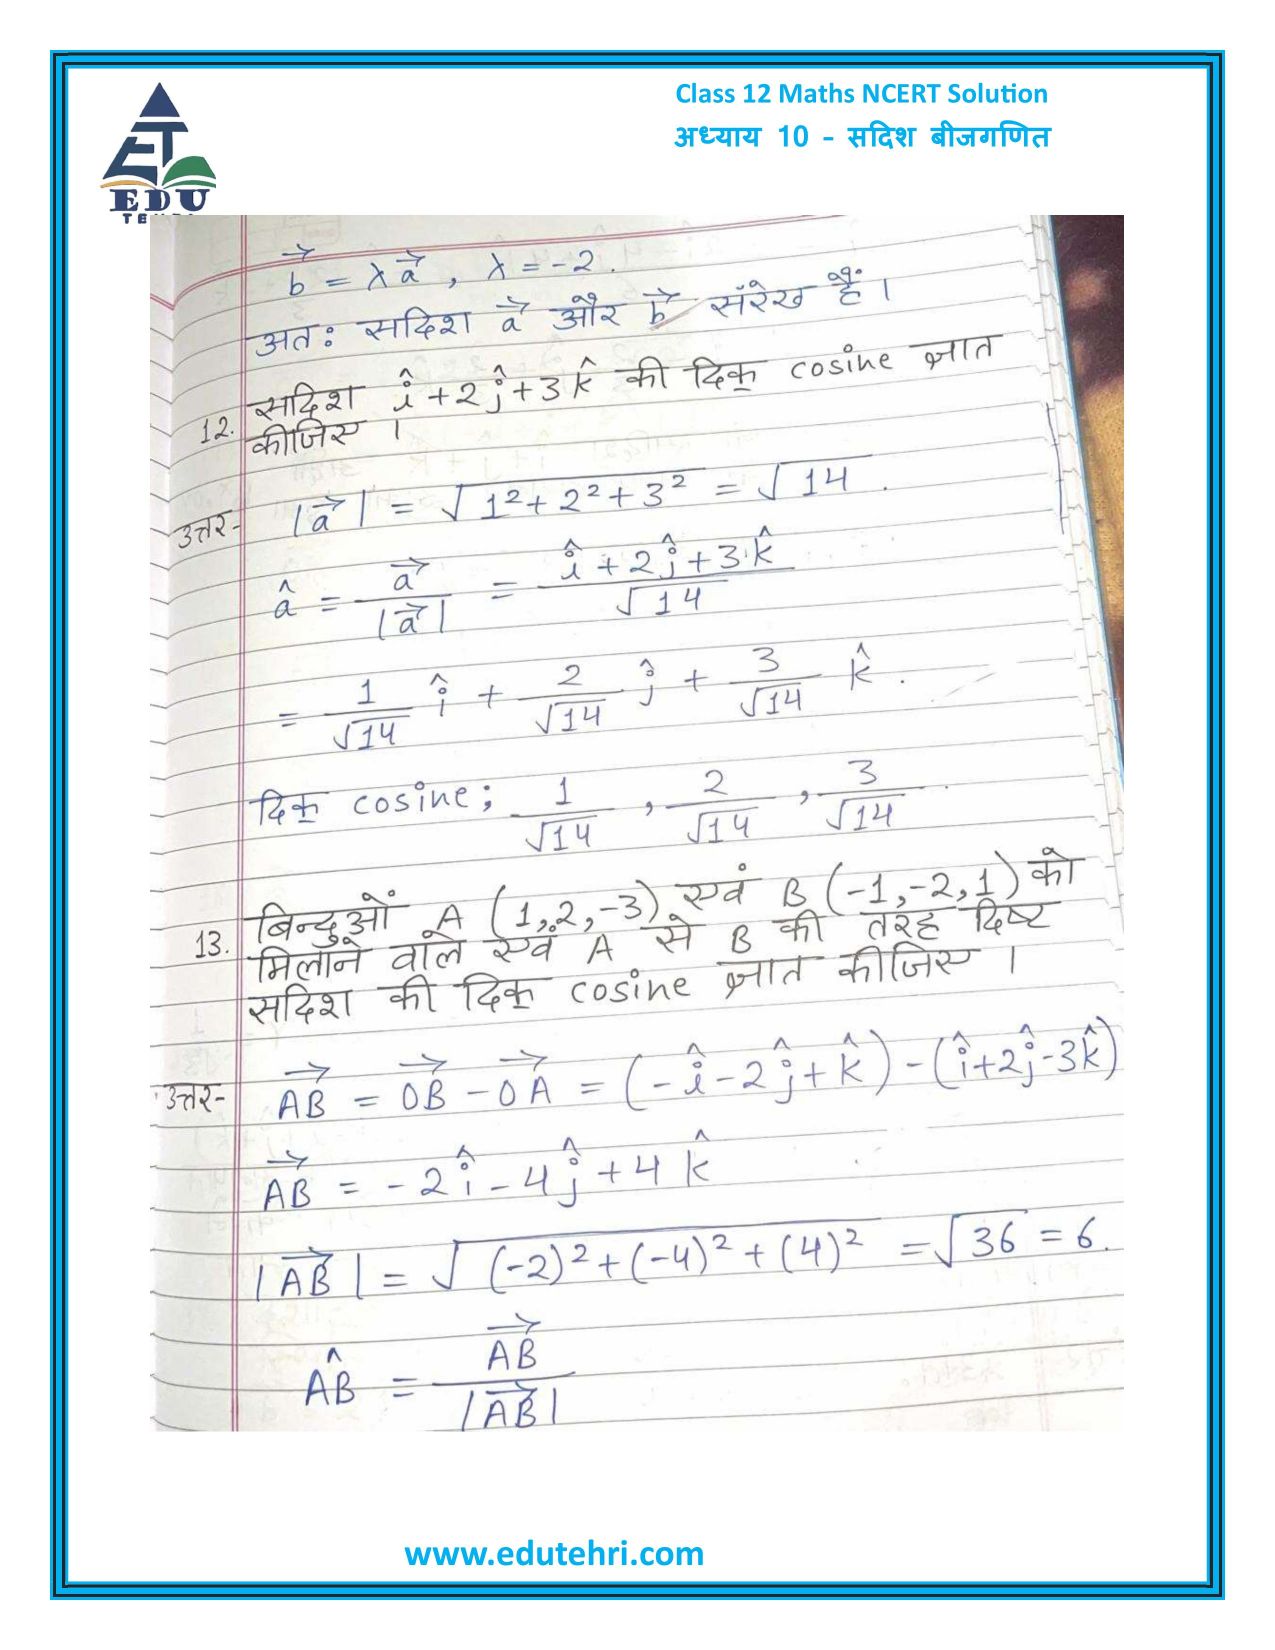 Class 12 Maths NCERT Solution
अध्याय 10 - सदिश बीजगणित
EDU
b⃗ = λa⃗ , λ = -2 .
अतः सदिश a⃗ और b⃗ संरेख हैं।
12. सदिश î + 2ĵ + 3k̂ की दिक् cosine ज्ञात
कीजिए ।
उत्तर- |a⃗| = √(1² + 2² + 3²) = √14 .
â = a⃗/|a⃗| = (î + 2ĵ + 3k̂)/√14
= 1/√14 î + 2/√14 ĵ + 3/√14 k̂ .
दिक् cosine; 1/√14 , 2/√14 , 3/√14 .
13. बिन्दुओं A (1,2,-3) एवं B (-1,-2,1) को
मिलाने वाले एवं A से B की तरह दिष्ट
सदिश की दिक् cosine ज्ञात कीजिए ।
उत्तर- AB⃗ = OB⃗ - OA⃗ = (-î - 2ĵ + k̂) - (î + 2ĵ - 3k̂)
AB⃗ = -2î - 4ĵ + 4k̂
|AB⃗| = √((-2)² + (-4)² + (4)²) = √36 = 6.
AB̂ = AB⃗/|AB⃗|
www.edutehri.com